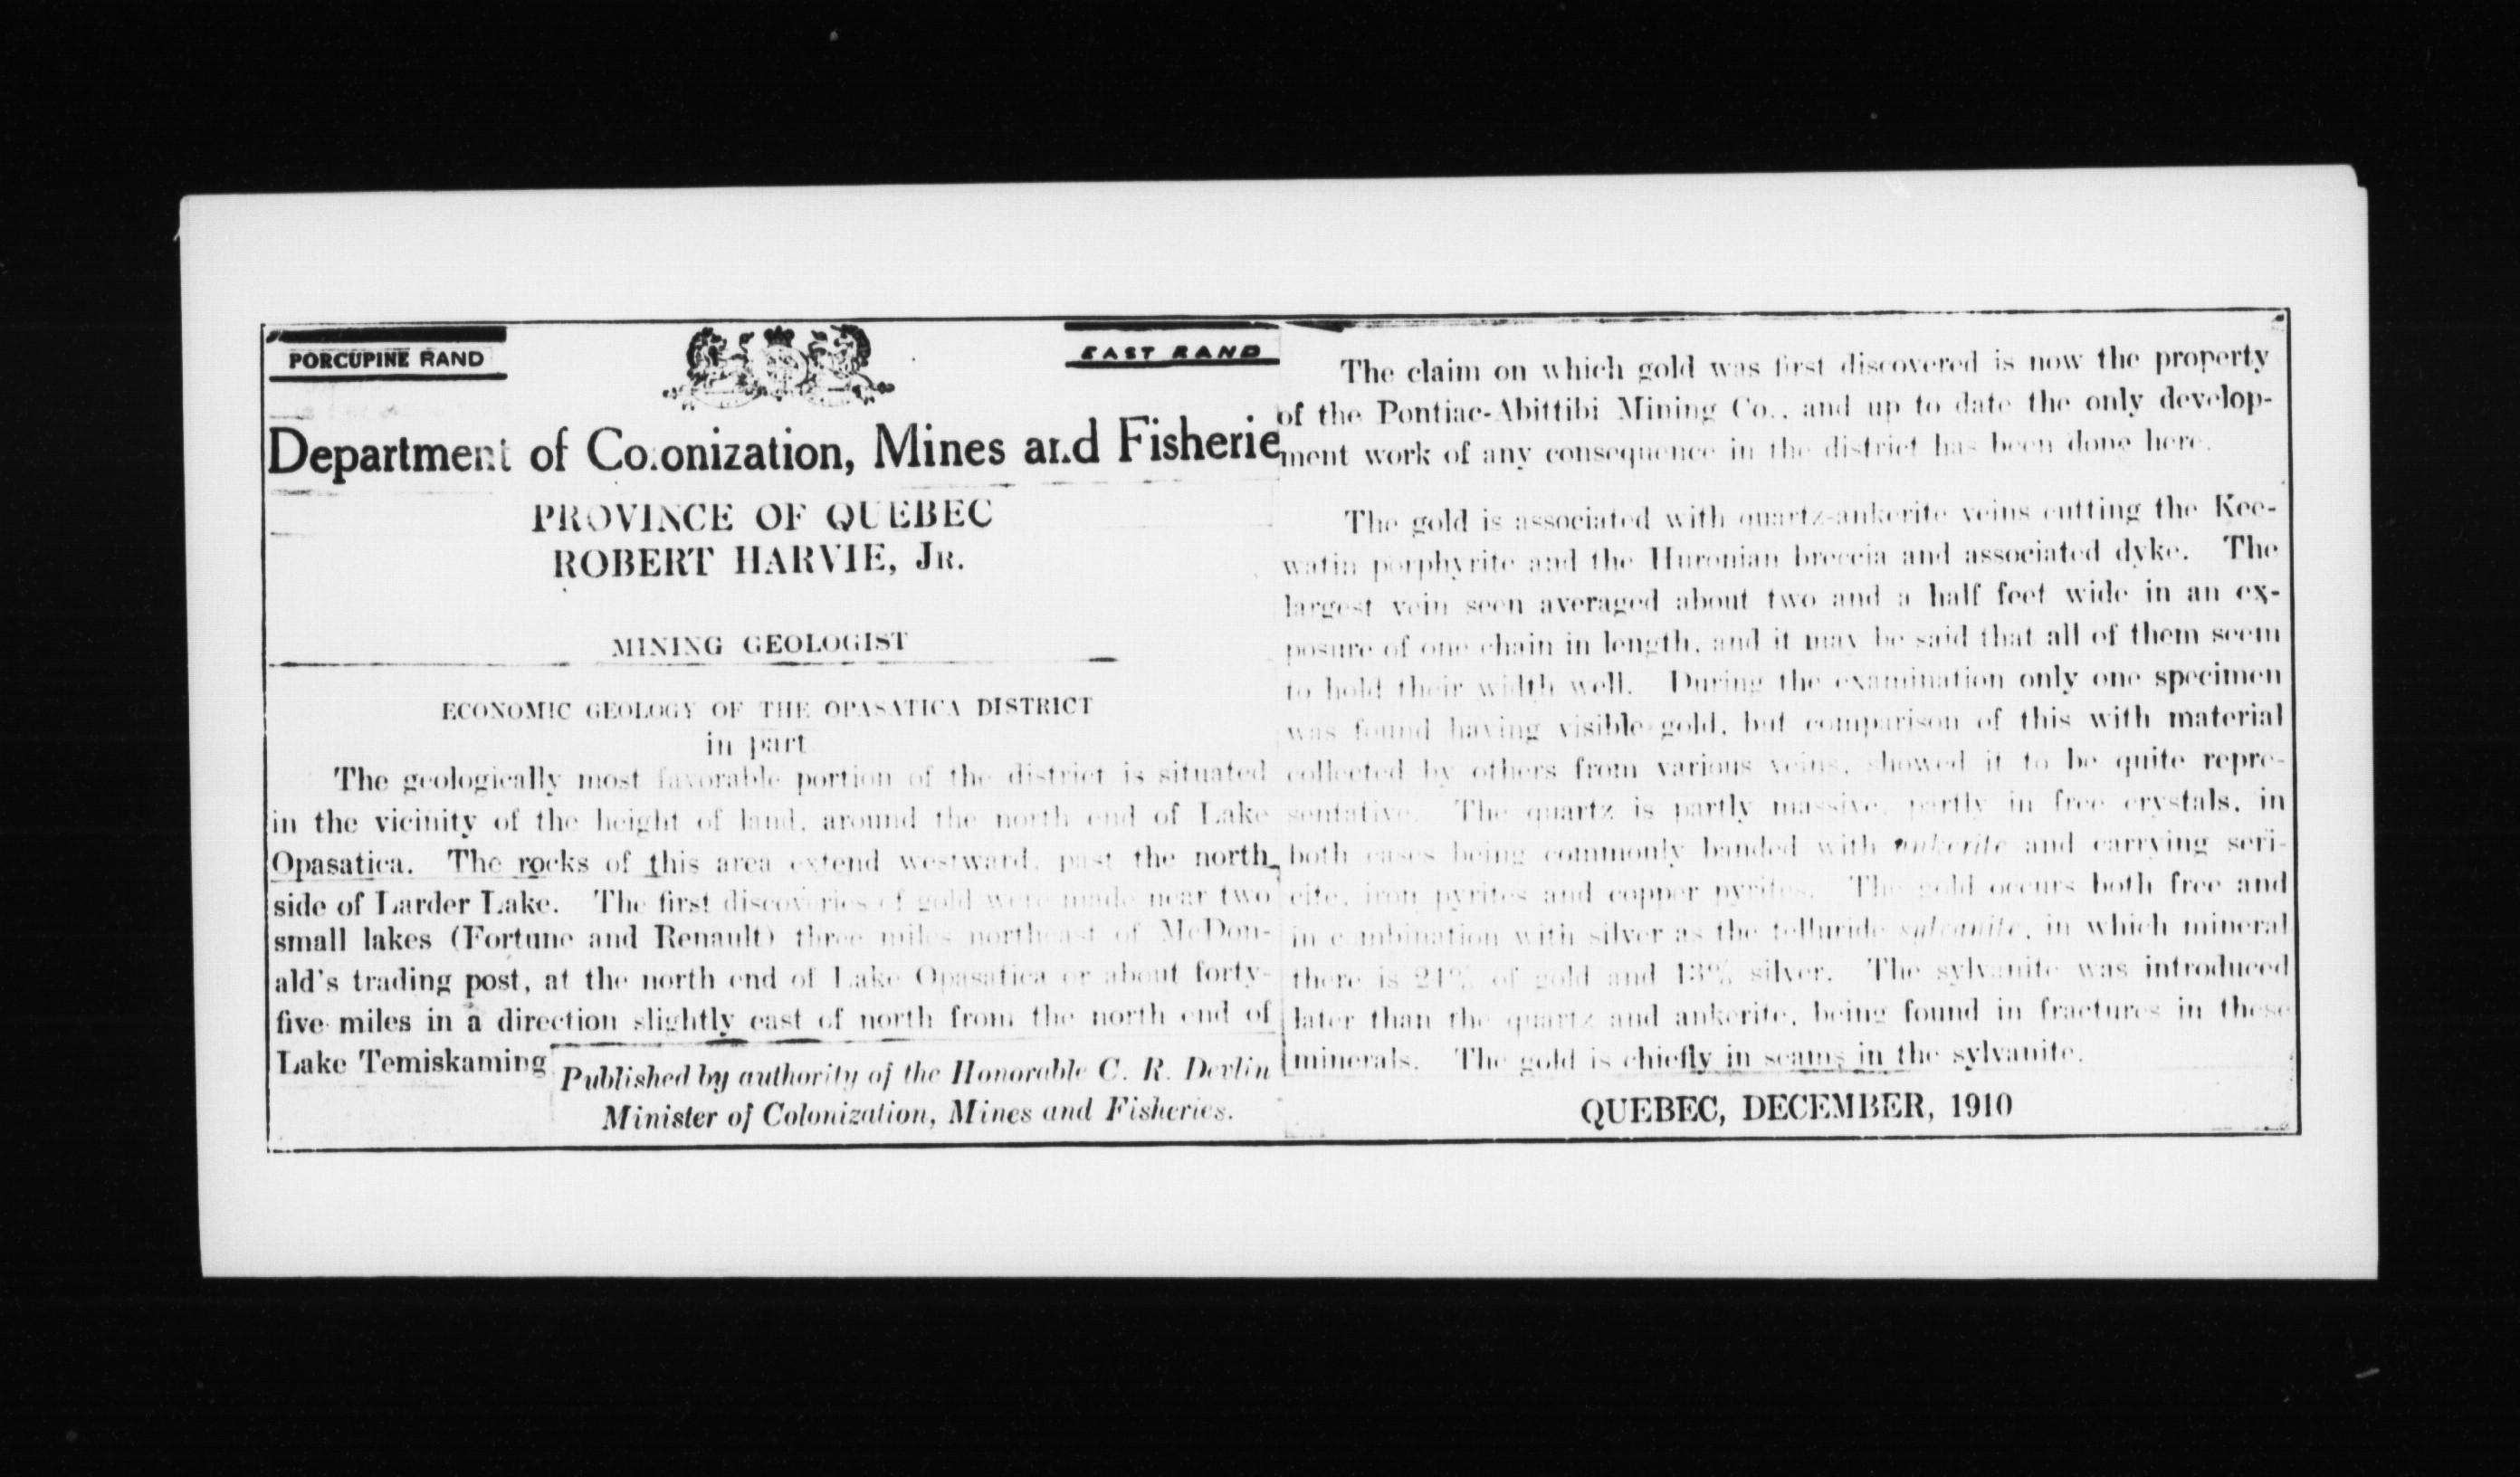 PORCUPINE RAND
EAST RAND
Department of Colonization, Mines and Fisherie
PROVINCE OF QUEBEC
ROBERT HARVIE, JR.
MINING GEOLOGIST
ECONOMIC GEOLOGY OF THE OPASATICA DISTRICT
in part
The geologically most favorable portion of the district is situated
in the vicinity of the height of land, around the north end of Lake
Opasatica. The rocks of this area extend westward, past the north
side of Larder Lake. The first discoveries of gold were made near two
small lakes (Fortune and Renault) three miles northeast of McDon-
ald's trading post, at the north end of Lake Opasatica or about forty-
five miles in a direction slightly east of north from the north end of
Lake Temiskaming
Published by authority of the Honorable C. R. Devlin
Minister of Colonization, Mines and Fisheries.
The claim on which gold was first discovered is now the property
of the Pontiac-Abittibi Mining Co., and up to date the only develop-
ment work of any consequence in the district has been done here.
The gold is associated with quartz-ankerite veins cutting the Kee-
watin porphyrite and the Huronian breccia and associated dyke. The
largest vein seen averaged about two and a half feet wide in an ex-
posure of one chain in length, and it may be said that all of them seem
to hold their width well. During the examination only one specimen
was found having visible gold, but comparison of this with material
collected by others from various veins, showed it to be quite repre-
sentative. The quartz is partly massive, partly in free crystals, in
both cases being commonly banded with ankerite and carrying seri-
cite, iron pyrites and copper pyrites. The gold occurs both free and
in combination with silver as the telluride sylvanite, in which mineral
there is 24% of gold and 13% silver. The sylvanite was introduced
later than the quartz and ankerite, being found in fractures in these
minerals. The gold is chiefly in seams in the sylvanite.
QUEBEC, DECEMBER, 1910